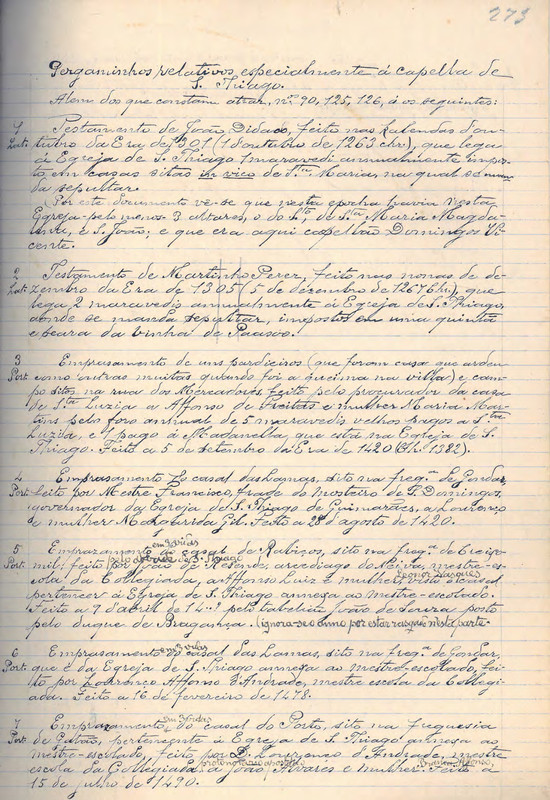 273
Pergaminhos relativos, especialmente á capella de
S. Thiago.
Alem dos que constam atraz, nos. 90, 125, 126, á os seguintes:
1 Testamento de João Didaco, feito nas Kalendas d'ou-
Lat. tubro da Era de 1301 (1 d'outubro de 1263 chr.), que lega
á Egreja de S. Thiago 1 maravedi annualmente impos-
to em casas sitas in vico de S.ta Maria, na qual se man-
da sepultar.
Por este documento vê-se que nesta epocha havia nesta
Egreja pelo menos 3 altares, o do S.to, de S.ta Maria Magda-
lena, e S. João; e que era aqui capellão Domingos Vi-
cente.
2 Testamento de Martinho Perez, feito nas nonas de de-
Lat. zembro da Era de 1305 (5 de dezembro de 1267 chr.), que
lega 2 maravedis annualmente á Egreja de S. Thiago,
aonde se manda sepultar, impostos em uma quintã
e seara da vinha de
3 Emprasamento de uns pardieiros (que foram casa que ardeu
Port. como outras muitas quando foi a na villa) e cam-
po sitos na rua dos Mercadores, feito pelo procurador da casa
de S.ta Luzia a Affonso de Freitas e mulher Maria Mar-
tins pelo foro annual de 5 maravedis velhos pagos a S.ta
Luzia, e 1 pago á Magdanella que está na Egreja de S.
Thiago. Feito a 5 de setembro da Era de 1420 (Chr. 1382).
4 Emprasamento do casal das Lamas, sito na freg.a de Gondar,
Port. feito por Mestre Francisco, frade do mosteiro de S. Domingos,
governador da Egreja de S. Thiago de Guimarães, a Lourenço
e mulher Margarida Gil. Feito a 28 d'agosto de 1420.
5 Emprazamento em 3 vidas do casal de Rabiços, sito na freg.a de Creixo-
Port. mil; feito pelo de S. Thiago de Resende, arcediago de Neiva, mestre-es-
cola da Collegiada, a Affonso Luiz e mulher Leonor Vasques, cujo casal
pertencer á Egreja de S. Thiago annexa ao mestre-escolado.
Feito a 9 d'abril de 14..? pelo tabellião João de Souza posto
pelo duque de Bragança. (ignora-se o anno por estar rasgado nesta parte.
6 Emprazamento em 3 vidas do casal das Lamas, sito na freg.a de Gondar,
Port. que é da Egreja de S. Thiago annexa ao mestre-escolado, fei-
to por Lourenço Affonso d'Andrade, mestre escola da Collegi-
ada. Feito a 16 de fevereiro de 1478.
7 Emprazamento em 3 vidas do casal do Porto, sito na freguesia
Port. de pertencente á Egreja de S. Thiago annexa ao
mestre-escolado, feito por D. Lourenço d'Andrade, mestre
escola da Collegiada, protonotario apostolico a João Alvares e mulher Briatiz Affonso. Feito a
15 de julho de 1490.